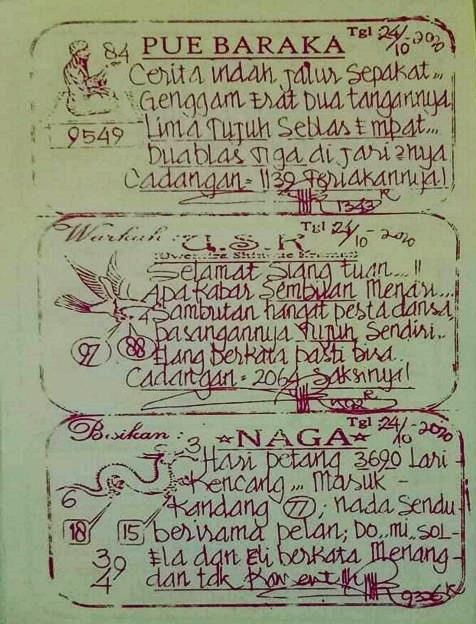 84
PUE BARAKA
Tgl 24/10-2020
Cerita indah jalur Sepakat...
Genggam Erat Dua tangannya
9549
Lima Tujuh Seblas Empat...
Duablas Tiga di jari2nya
Cadangan = 1139 Teriakannya!
1343 R
Warkah :
U.S.K
Tgl 24/10-2020
Selamat Siang tuan...!!
Apa kabar Sembilan Menari...
Sambutan hangat pesta dansa
97
88
Pasangannya Tujuh Sendiri..
Elang berkata pasti bisa..
Cadangan = 2064 Saksinya!
Bisikan :
NAGA
Tgl 24/10-2020
7
3
Hari petang 3690 Lari
6
Kencang... Masuk -
Kandang 77; nada Sendu
18
15
berirama pelan; Do..mi..SOL-
3 9
4
Ela dan Eli berkata Menang-
dan tak
9326 K